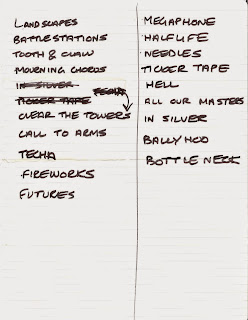 LANDSCAPES
BATTLESTATIONS
TOOTH & CLAW
MOURNING CHORDS
IN SILVER
TICKER TAPE
TECHA
CLEAR THE TOWERS
CALL TO ARMS
TECHA
FIREWORKS
FUTURES
MEGAPHONE
HALFLIFE
NEEDLES
TICKER TAPE
HELL
ALL OUR MASTERS
IN SILVER
BALLYHOO
BOTTLE NECK